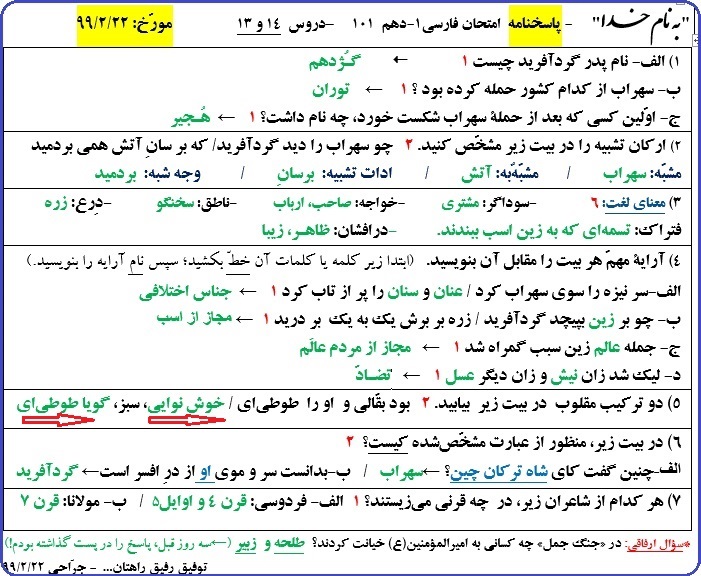 "به نام خدا" - پاسخنامه امتحان فارسی۱-دهم ۱۰۱ -دروس ۱۴ و ۱۳ مورّخ: ۹۹/۲/۲۲
۱) الف- نام پدر گردآفرید چیست ۱ ← گُژدهم
ب- سهراب از کدام کشور حمله کرده بود ؟ ۱ ← توران
ج- اوّلین کسی که بعد از حملۀ سهراب شکست خورد، چه نام داشت؟ ۱ ← هُجیر
۲) ارکان تشبیه را در بیت زیر مشخّص کنید. ۲ چو سهراب را دید گردآفرید/ که بر سانِ آتش همی بردمید
مشبّه: سهراب / مشبّهٌ‌به: آتش / ادات تشبیه: برسانِ / وجه شبه: بردمید
۳) معنای لغت: ۶ -سوداگر: مشتری -خواجه: صاحب، ارباب -ناطق: سخنگو -دِرع: زره
فتراک: تسمه‌ای که به زین اسب ببندند. -درافشان: ظاهر، زیبا
۴) آرایۀ مهمّ هر بیت را مقابل آن بنویسید. (ابتدا زیر کلمه یا کلمات آن خطّ بکشید؛ سپس نام آرایه را بنویسید.)
الف-سر نیزه را سوی سهراب کرد / عنان و سنان را پر از تاب کرد ۱ ← جناس اختلافی
ب- چو بر زین بپیچد گردآفرید / زره بر برش یک به یک بر درید ۱ ← مجاز از اسب
ج- جمله عالم زین سبب گمراه شد ۱ ← مجاز از مردم عالَم
د- لیک شد زان نیش و زان دیگر عسل ۱ ← تضادّ
۵) دو ترکیب مقلوب در بیت زیر بیابید. ۲ بود بقّالی و او را طوطی‌ای / خوش نوایی، سبز، گویا طوطی‌ای
۶) در بیت زیر، منظور از عبارت مشخّص‌شده کیست؟ ۲
الف-چنین گفت کای شاه ترکان چین؟ ← سهراب / ب-بدانست سر و موی او از درِ افسر است← گردآفرید
۷) هر کدام از شاعران زیر، در چه قرنی می‌زیستند؟ ۱ الف- فردوسی: قرن ۴ و اوایل۵ / ب- مولانا: قرن ۷
*سؤال ارفاقی: در «جنگ جمل» چه کسانی به امیرالمؤمنین(ع) خیانت کردند؟ طلحه و زبیر (←سه روز قبل، پاسخ را در پست گذاشته بودم!)
توفیق رفیق راهتان... - جرّاحی ۹۹/۲/۲۲